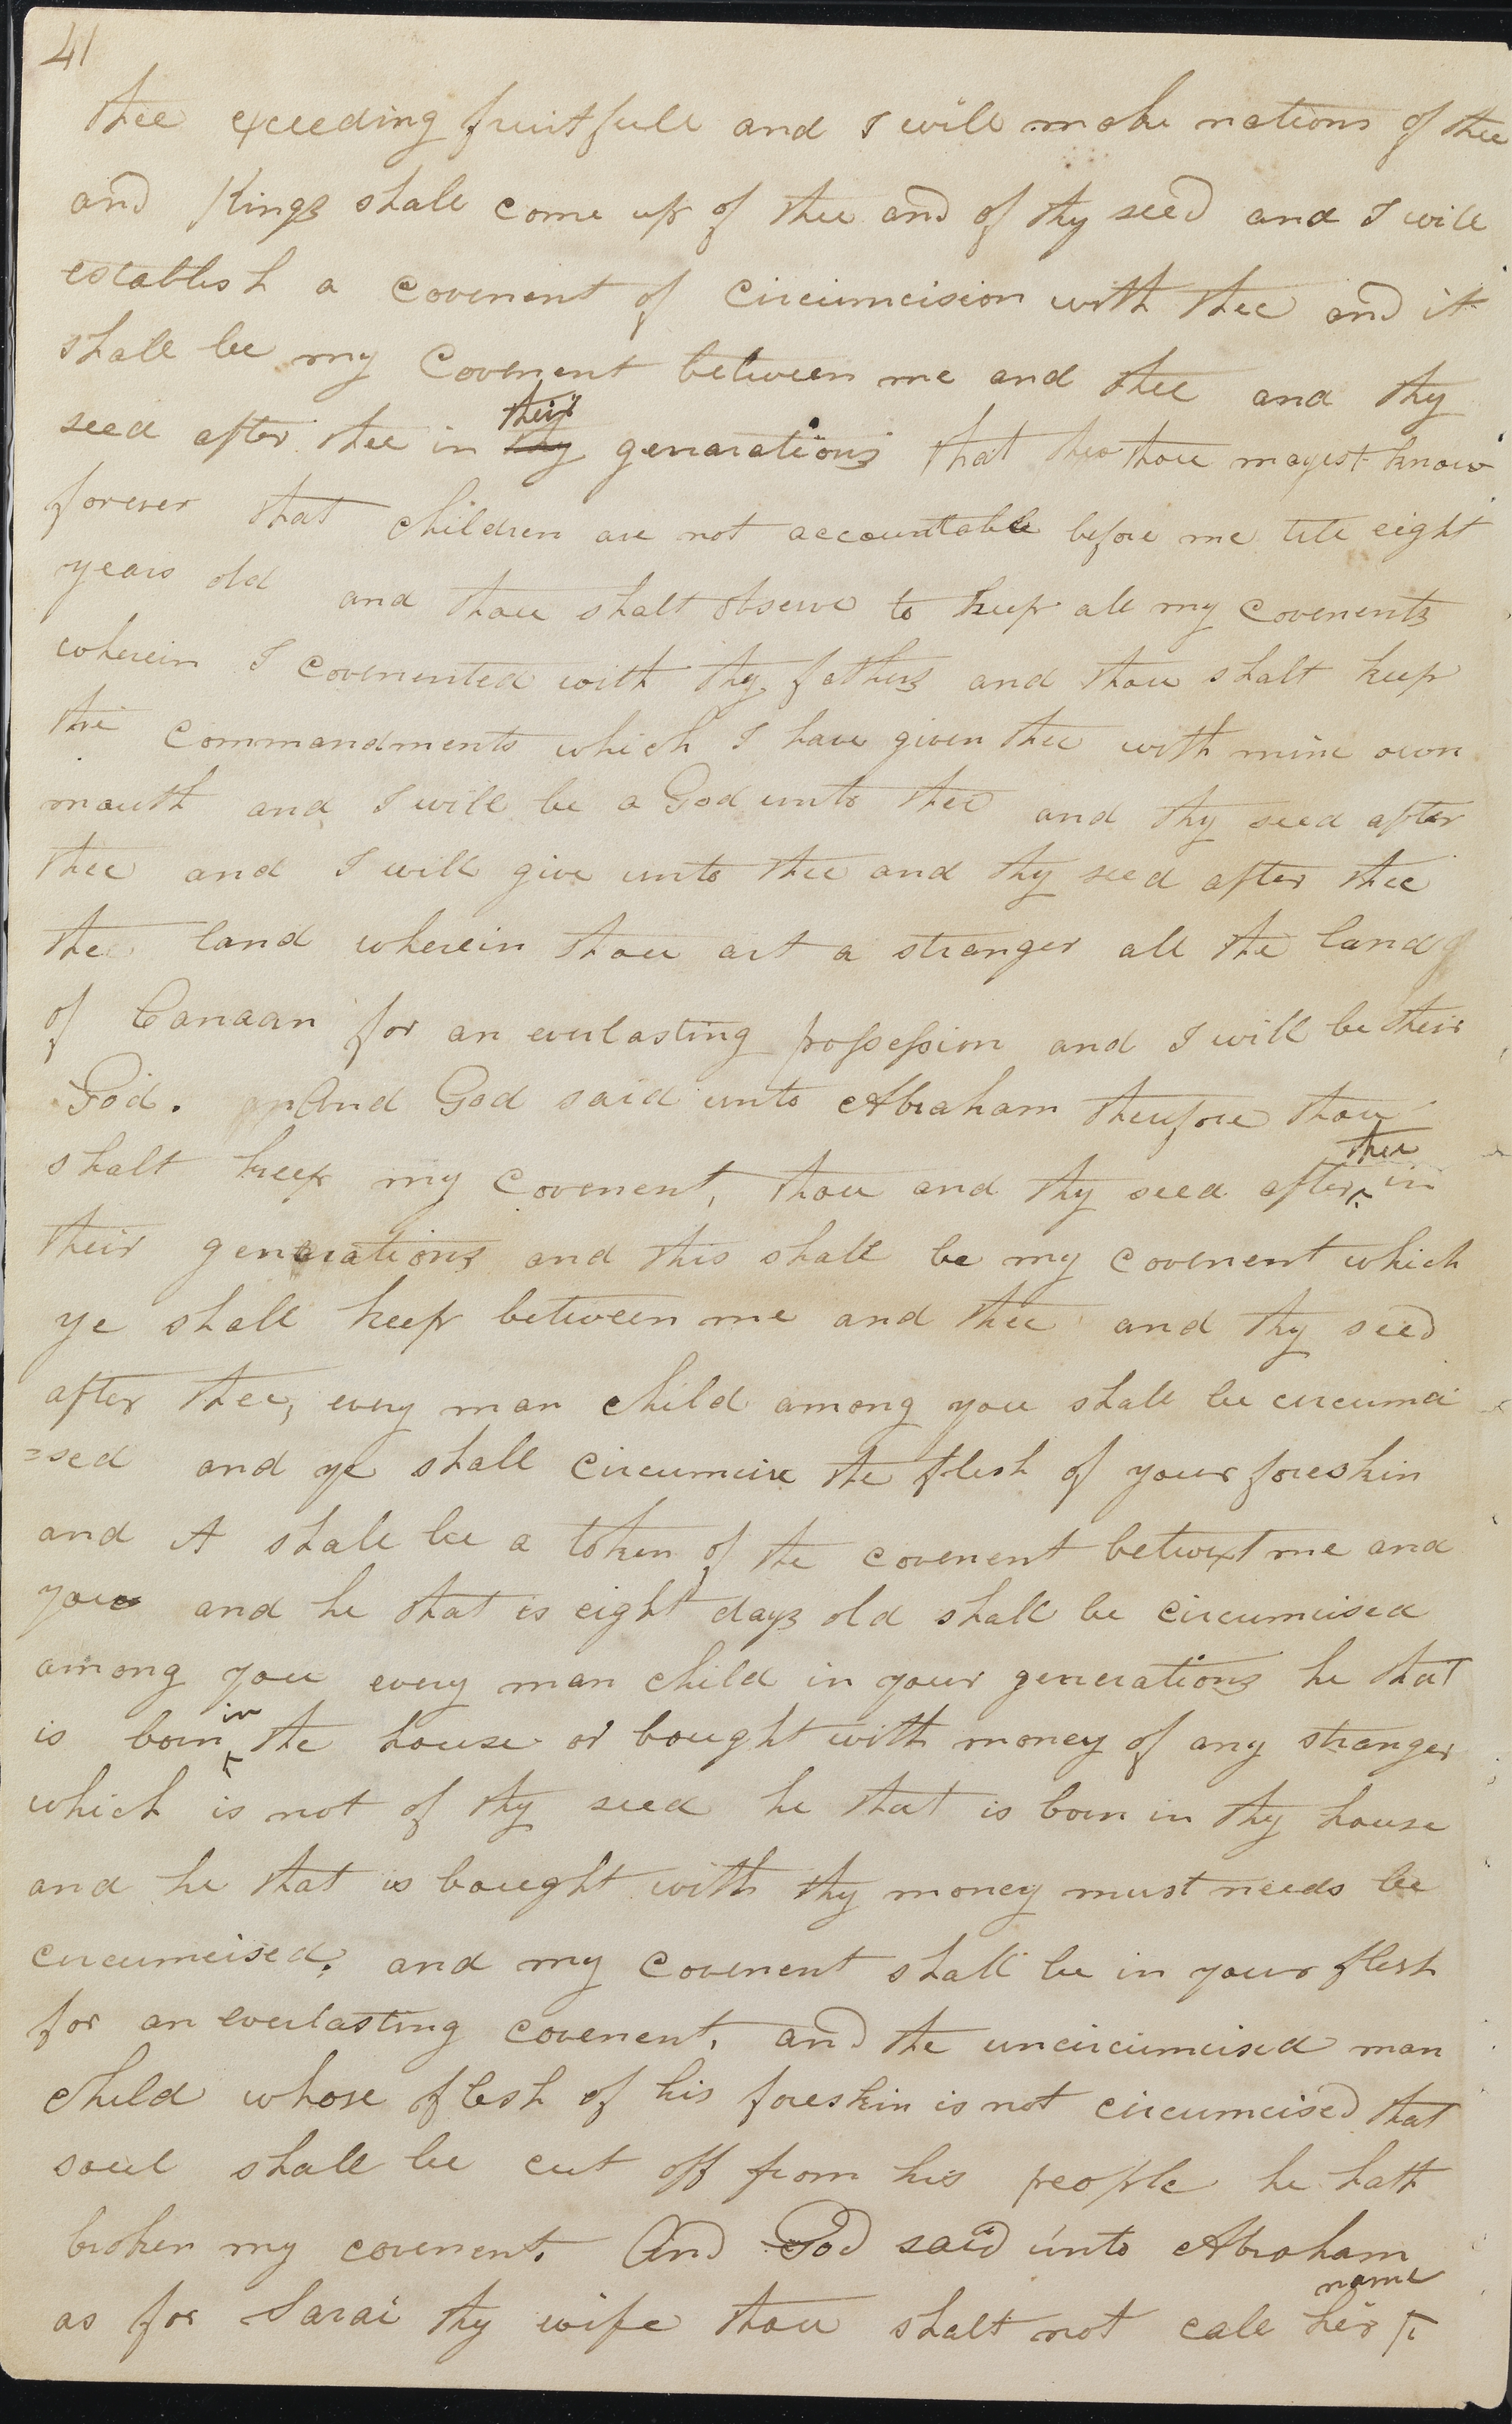 41
thee exceeding fruitfull and I will make nations of thee
and Kings shall come up of thee and of thy seed and I will
establish a covenent of Circumcision with thee and it
shall be my Covenent between me and thee and thy
their
seed after thee in thy genarations that thou mayest know
forever that children are not accountable before me till eight
years old and thou shalt observe to keep all my covenents
wherein I covenented with thy fathers and thou shalt keep
the commandments which I have given thee with mine own
mouth and I will be a God unto thee and thy seed after
thee and I will give unto thee and thy seed after thee
the land wherein thou art a stranger all the land
of Canaan for an everlasting possession and I will be their
God. And God said unto Abraham therefore thou
thee
shalt keep my covenent, thou and thy seed after ^ in
their generations and this shall be my covenent which
ye shall keep between me and thee and thy seed
after thee, every man child among you shall be circumci
=sed and ye shall circumcise the flesh of your foreskin
and it shall be a token of the covenent betwixt me and
you and he that is eight days old shall be circumcised
among you every man child in your generations he that
in
is born ^ the house or bought with money of any stranger
which is not of thy seed he that is born in thy house
and he that is bought with thy money must needs be
circumcised, and my covenent shall be in your flesh
for an everlasting covenent, and the uncircumcised man
child whose flesh of his foreskin is not circumcised that
soul shall be cut off from his people he hath
broken my covenent. And God said unto Abraham
name
as for Sarai thy wife thou shalt not call her ^